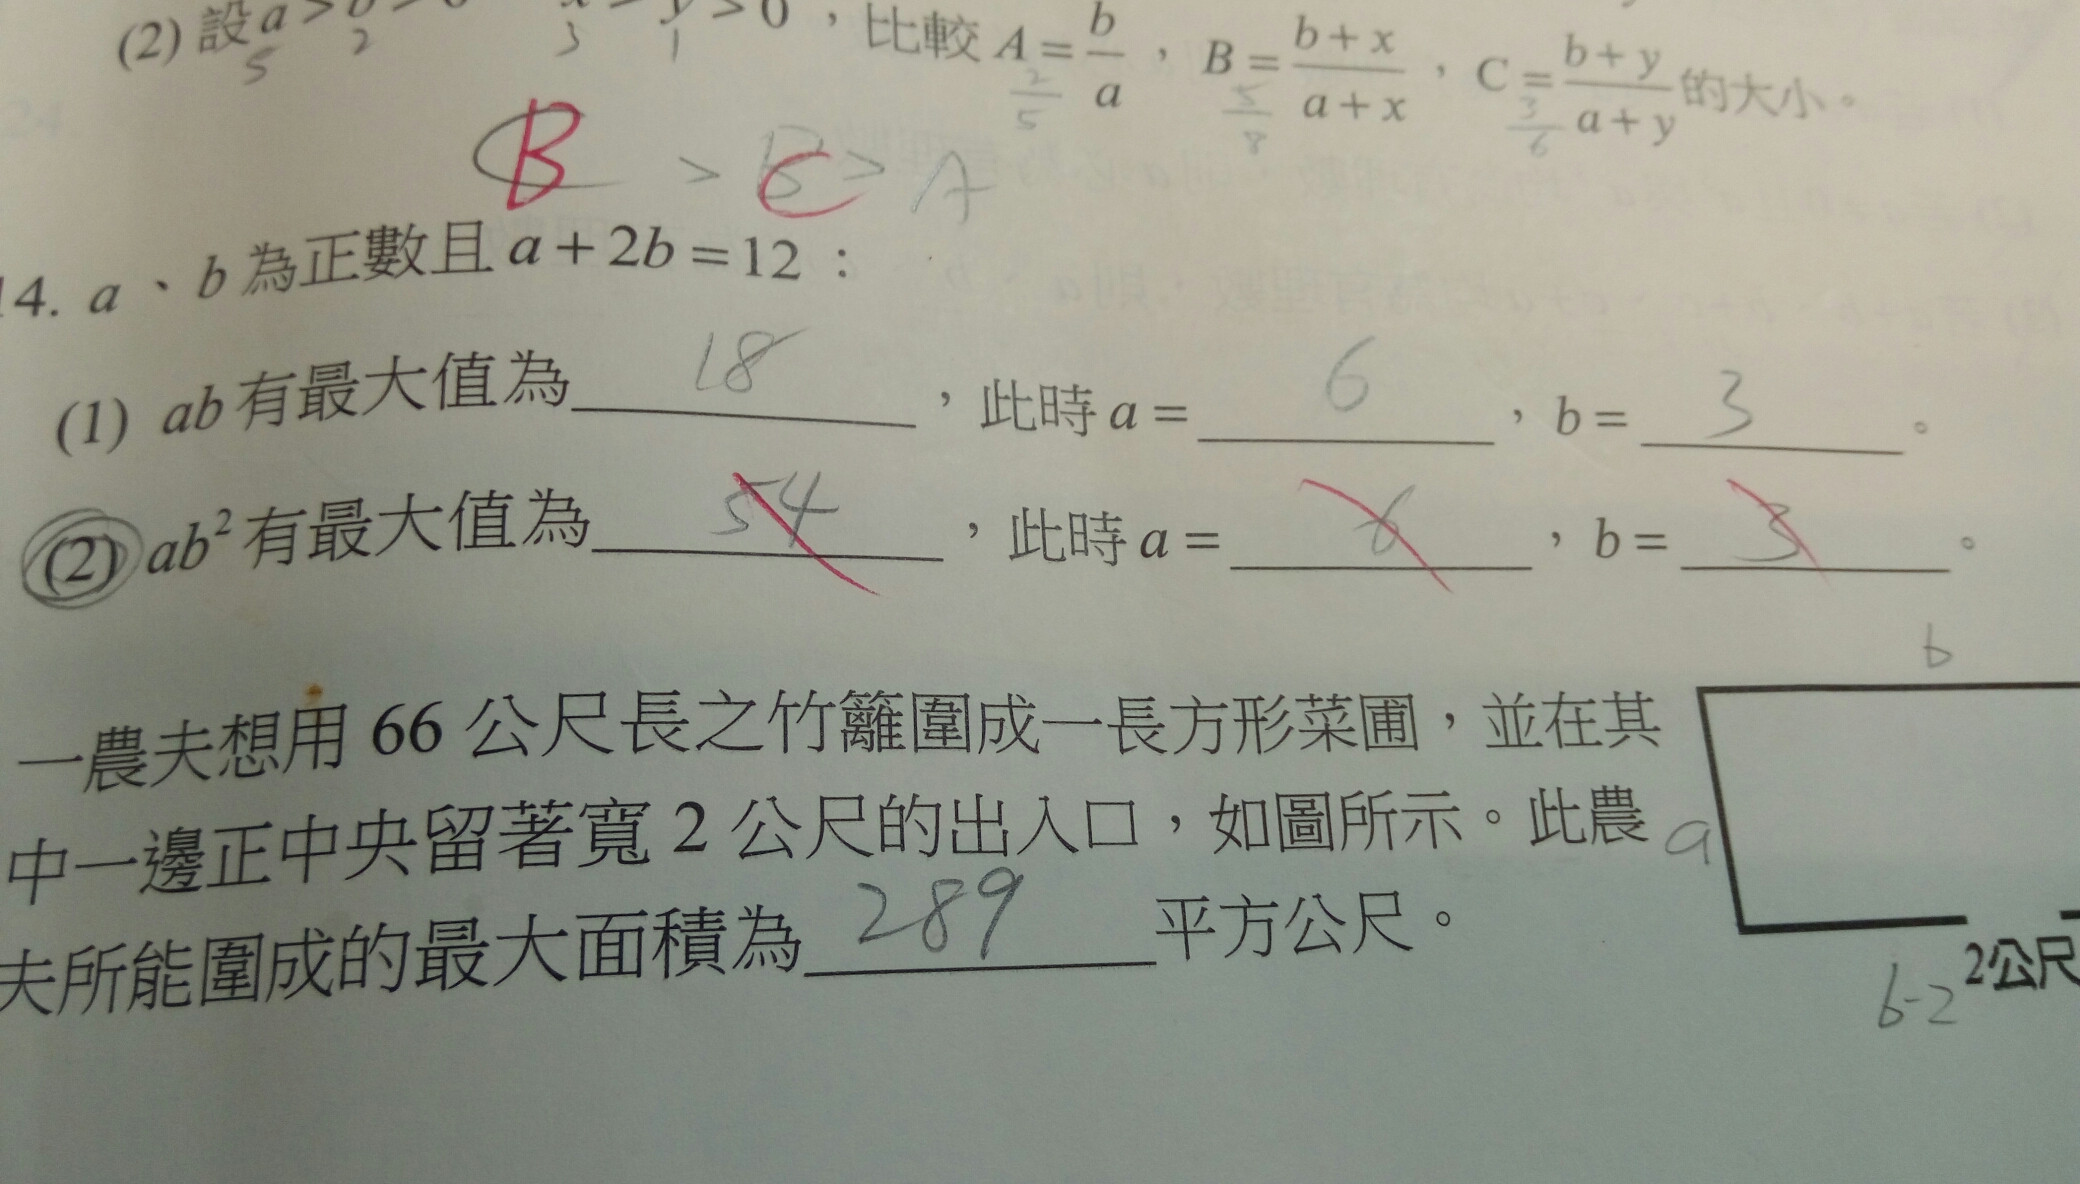 (2) 設 a > b > 0 x > y > 0，比較 A = b/a，B = (b+x)/(a+x)，C = (b+y)/(a+y) 的大小。
5 2 3 1 2/5 5/8 3/6
B > C > A
14. a、b 為正數且 a + 2b = 12：
(1) ab 有最大值為 18，此時 a = 6，b = 3。
(2) ab² 有最大值為 54，此時 a = 6，b = 3。
b
一農夫想用 66 公尺長之竹籬圍成一長方形菜圃，並在其
中一邊正中央留著寬 2 公尺的出入口，如圖所示。此農
a
夫所能圍成的最大面積為 289 平方公尺。
2公尺
b-2